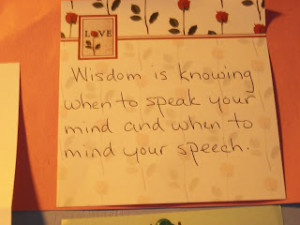 LOVE
Wisdom is knowing
when to speak your
mind and when to
mind your speech.